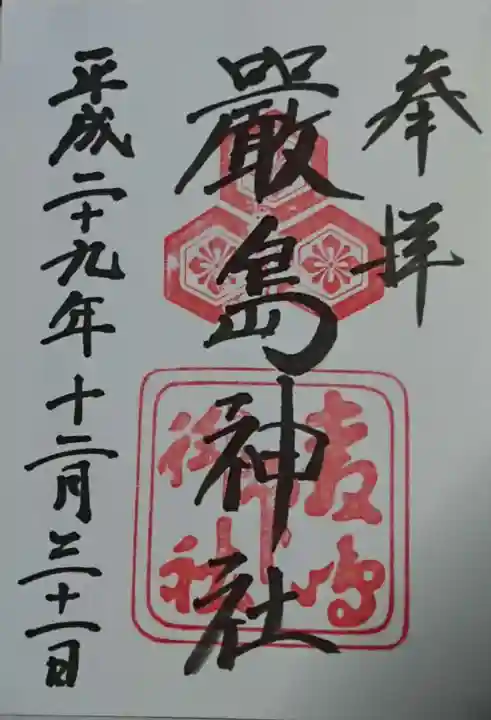 奉拝
嚴島神社
平成二十九年十二月三十一日